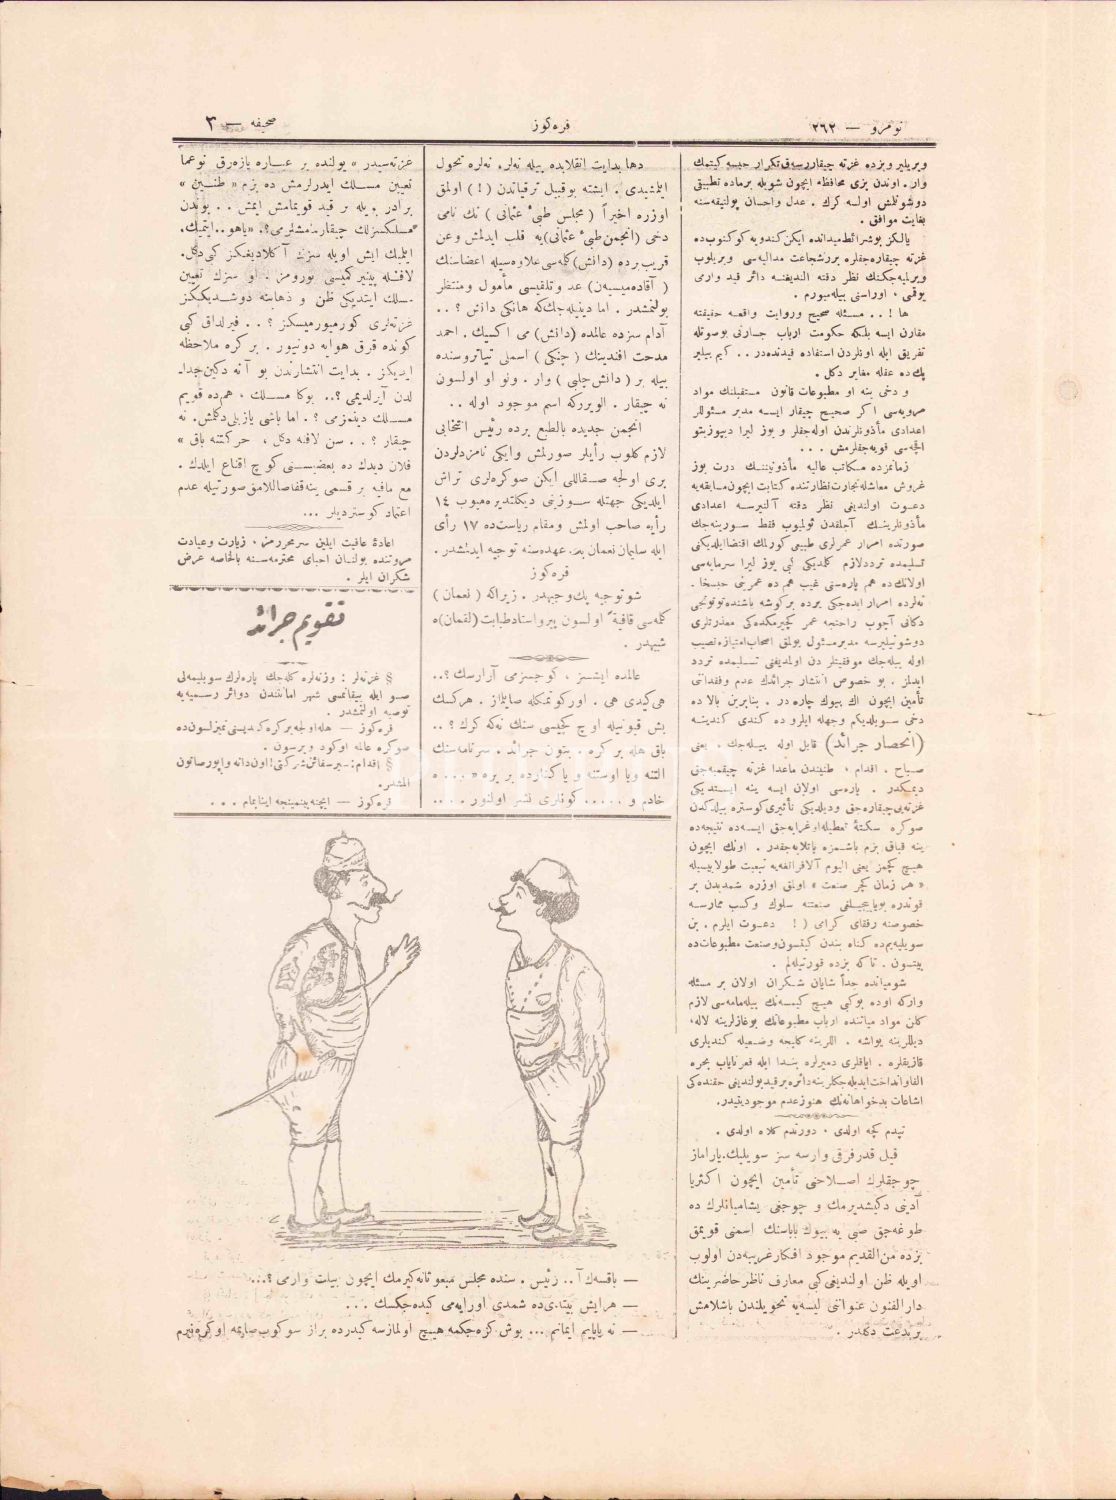 نومرو — ٢٦٢
قره‌كوز
صحيفه — ٣
ويريلير وبزده غزته چيقاررسه‌ق تكرار حبسه كيتمك
وار . اوندن بزى محافظه ايچون شويله برماده تطبيقى
دوشونلمش اولسه كرك . عدل واحسان پولتيقه‌سنه
بغايت موافق .
يالكز بوشرائط ميدانده ايكن كندويه كوكنوب‌ده
غزته چيقاره‌جقلره بررشجاعت مداليه‌سى ويريلوب
ويرلميه‌جكنك نظر دقته الندیغنه دائر قيد وارمى
يوقمى ، اوراسنى بيله‌ميورم .
ها ! . . مسئله صحيح وروايت واقعه حقيقته
مقارن ايسه بلكه حكومت ارباب جسارتى بوصوتله
تفريق ايله اونلردن استفاده قيدنده‌در . . كيم بيلير
پك‌ده عقله مغاير دكل .
و دخى ينه او مطبوعات قانون مستقبلنك مواد
مرويه‌سى اكر صحيح چيقار ايسه مدير مسئوللر
اعدادى مأذونلرندن اوله‌جقلر و يوز ليرا ديپوزيتو
اقچه‌سى قويه‌جقلرمش . . .
زمانمزده مكاتب عاليه مأذونيتنك درت يوز
غروش معاشله تجارت نظارتنده كتابت ايچون مسابقه‌يه
دعوت اولنديغى نظر دقته آلنيرسه اعدادى
مأذونلرينك آجلقدن ئولميوب فقط سورينه‌جك
صورتده امرار عمرلرى طبيعى كورلمك اقتضا ايلديكنى
تسليمده تردد لازم كلمديكى كبى يوز ليرا سرمايه‌سى
اولانك‌ده هم پاره‌سنى غيب هم ده عمرينى حبسخا .
نه‌لرده امرار ايده‌جكى يرده بر كوشه باشنده توتونجى
دكانى آچوب راحتجه عمر كچيرمكده‌كى معذرتلرى
دوشونيلیرسه مدير مسئول بولمق اصحاب امتيازه نصيب
اوله بيله‌جك موفقيتلر دن اولمديغنى تسليمده تردد
ايدلمز . بو خصوص انتشار جرائدك عدم وفقداننى
تأمين ايچون اك بيوك چاره در . بنابرين بالا ده
دخى سويلديكم وجهله ايلرو ده كندى كندينه
( انحصار جرائد ) قابل اوله بيله‌جك . يعنى
صباح . اقدام ، طنيندن ماعدا غزته چيقميه‌جق
ديمكدر . پاره‌سى اولان ايسه ينه ايستديكى
غزته‌يى چيقاره‌جق وديلديكى تأثيرى كوستره بيلدكدن
صوكره سكتۀ تعطيله اوغرايه‌جق ايسه‌ده نتيجه‌ده
ينه قباق بزم باشمزه پاتلايه‌جقدر . اونك ايچون
هيچ كچمز يعنى اليوم آلافرانغه‌يه تبعيت طولاييسيله
« هر زمان كچر صنعت » اولمق اوزره شمديدن بر
قوندره بوياجيلغى صنعتنه سلوك وكسب ممارسه
خصوصنه رفقاى كرامى ( ! دعوت ايلرم . بن
سويليه‌يم‌ده كناه بندن كيتسون وصنعت مطبوعات‌ده
بيتسون . تاكه بزده قورتيله‌لم .
شوميانده جداً شايان شكران اولان بر مسئله
واركه اوده بوكبى هيچ كيمسه‌نك بيله‌مامه‌سى لازم
كلن مواد مياننده ارباب مطبوعاتك بوغازلرينه لاله،
ديللرينه يواشه . اللرينه كليجه وضعيله كنديلرى
قازيقلره . اياقلرى دميرلره بندا ايله قعرناياب بحره
القا وانداخت ايديله‌جكلرينه دائره بر قيد بولنديغى حقنده‌كى
اشاعات بدخواهانه‌نك هنوز عدم موجوديتيدر .
تپدم كچه اولدى ، دورتدم كلاه اولدى .
قيل قدر فرقى وارسه سز سويليك . ياراماز
چوجقلرك اصلاحنى تأمين ايچون اكثريا
آدينى دكيشديرمك و چوجغى يشاميانلرك ده
طوغه‌جق صبى يه بيوك باباسنك اسمنى قويمق
بزده من‌القديم موجود افكار غريبه‌دن اولوب
اويله ظن اولنديغى كبى معارف ناظر حاضرينك
دار الفنون عنواننى ليسه‌يه تحويلندن باشلامش
بر بدعت دكلدر .
دها بدايت انقلابده بيله نه‌لر ، نه‌لره تحول
ايلمشيدى . ايشته بوقبيل ترقياتدن ( ! ) اولمق
اوزره اخيراً ( مجلس طبىٔ عثمانى ) نك نامى
دخى ( انجمن طبىٔ عثمانى ) يه قلب ايدلمش وعن
قريب برده ( دانش ) كلمه‌سى علاوه‌سيله اعضاسنك
( آقاده‌ميسيه‌ن ) عد وتلقيسى مأمول ومنتظر
بولنمشدر . اما دينيله‌جك‌كه هانكى دانش ؟ . .
آدام سزده عالمده ( دانش ) مى اكسيك . احمد
مدحت افندينك ( چنكى ) اسملى تياتروسنده
بيله بر ( دانش چلبى ) وار . ونو او اولسون
نه چيقار . الويرركه اسم موجود اوله . .
انجمن جديده بالطبع برده رئيس انتخابى
لازم كلوب رأيلر صورلمش وايكى نامزدلردن
برى اولجه صقاللى ايكن صوكره‌لرى تراش
ايلديكى جهتله سوزينى ديكلتديره‌ميوب ١٤
رأيه صاحب اولمش ومقام رياست‌ده ١٧ رأى
ايله سليمان نعمان بك عهده‌سنه توجيه ايدلمشدر .
قره‌كوز
شو توجيه پك وجيهدر . زيراكه ( نعمان )
كلمه‌سى قافيةً اولسون پيرو استاد طبابت ( لقمان ) ه
شبيهدر .
عالمده ايشسز ، كوجسزمى آرارسك ؟ . .
هى كيدى هى . اوركوتمكله صايلماز . هركسك
بش قپونيله اوچ كچيسى سنك نه‌كه كرك ؟ . .
باق هله بر كره . بتون جرائد . سرنامه‌سنك
التنه ويا اوستنه و يا كنارده بر يره « . . . ه
خادم و . . . . . كونلرى نشر اولنور . . . .
غزته‌سيدر » يولنده بر عباره يازه‌رق نوعما
تعيين مسلك ايدرلرمش ده بزم « طنين »
برادر بويله بر قيد قويمامش ايمش . . بوندن
مسلكسزلك چيقارمشلرمى ؟ . ياهو . . ايتمیك،
ايلميك ايش اويله سزك آكلاديغكز كبى دكل .
لافله پينير كميسى يورومز . او سزك تعيين
مسلك ايتديكى ظن و ذهابنه دوشديككز
غزته‌لرى كورميورميسكز ؟ . . فيرلداق كبى
كونده قرق هوايه دونيور . بر كره ملاحظه
ايديكز . بدايت انتشارندن بو آنه دكين جدا
لدن آيرلديمى ؟ . . بوكا مسلك ، هم‌ده قويم
مسلك دينمزمى ؟ . اما باشى يازيلى دكلمش . نه
چيقار ؟ . . سن لافنه دكل ، حركتنه باق »
فلان ديدك ده بعضيسنى كوچ اقناع ايلدك .
مع مافيه بر قسمى ينه قفا صاللامق صورتيله عدم
اعتماد كوسترديلر . . .
اعادۀ عافيت ايلين سرمحررمز ، زيارت وعيادت
مروتنده بولنان احباى محترمه‌سنه بالخاصه عرض
شكران ايلر .
تقويم جرائد
§ غزته‌لر : وزنه‌لره كله‌جك پاره‌لرك سويليمه‌لى
صو ايله ييقانمسى شهر امانتندن دوائر رسميه‌يه
توصيه اولنمشدر .
قره‌كوز — هله اولجه بركره كنديسنى تميزلسون‌ده
صوكره عالمه اوكود ويرسون .
§ اقدام : سير سفائن شركتى ! اون‌دانه واپور صاتون
المشدر .
قره‌كوز — ايچنه بينمينجه اينانمام . . .
— باقسه‌ك آ . . رئيس . سنده مجلس مبعوثانه كيرمك ايچون بيات وارمى ؟ . . .
— هر ايش بيتدى‌ده شمدى اورايه‌مى كيده‌جكسك . . .
— نه ياپايم ايمانم . . . بوش كزه‌جكمه هيچ اولمازسه كيدرده براز سوكوب صايمه اوكره‌نيرم